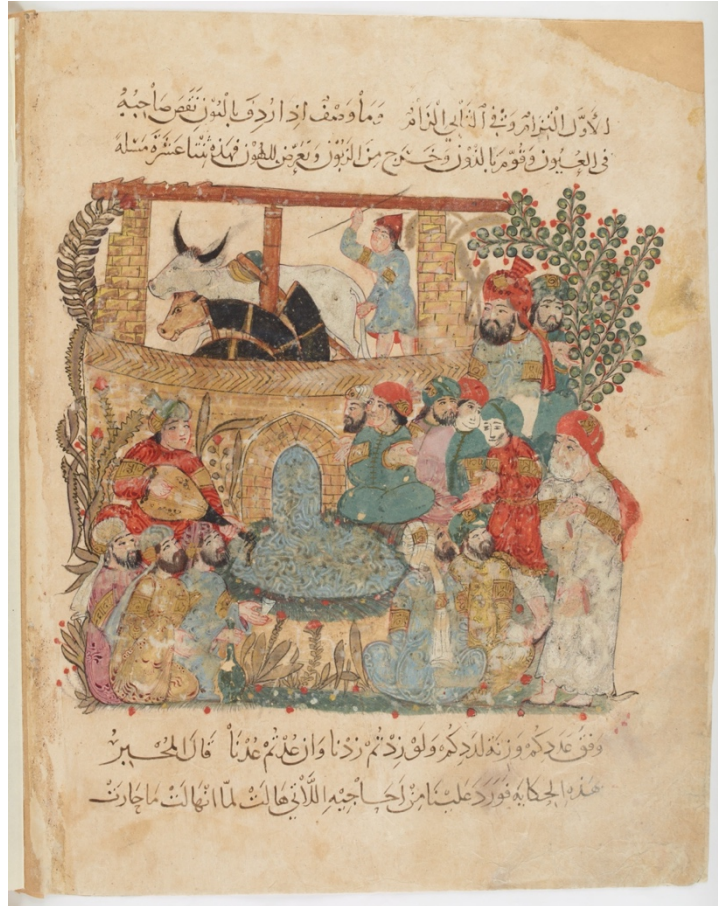 الاَوّل الْتِزامٌ وَفي الثاني الْزامٌ وَمَا وَصْفٌ اِذا اُردِفَ بالنّونِ نَقَصَ صَاحِبُهُ
في العُيُونِ وَقُوّمَ بالدّونِ وَخَرَجَ مِنَ الزّبُونِ وَتَعَرّضَ للهُونِ فهَذِهِ ثنتا عَشْرَةَ مَسْئلة
وَفْقَ عَدَدِكُمْ وَزِنَةَ لَدَدِكُمْ وَلَوْ زِدْتُمْ زِدْنَا وَانْ عُدْتُمْ عُدْنَا قَالَ المُخْبِرُ
بهَذِهِ الحكايَةِ فوَرَدَ عَلَيْنَا مِنْ اَحَاجِيهِ اللّاَتي هَالَتْ لَمّا انْهَالَتْ مَا حَارَتْ